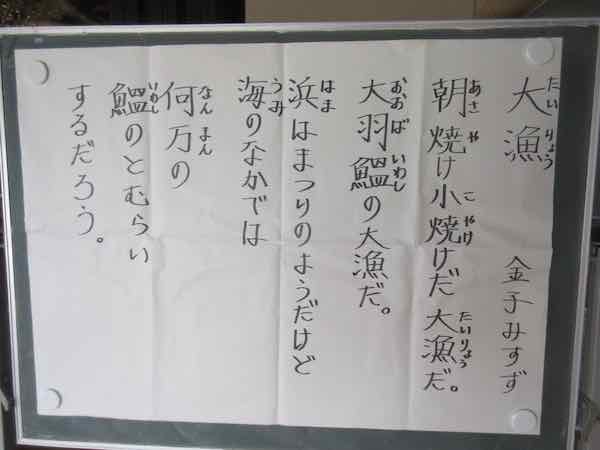 大漁
たいりょう
金子みすず
朝焼け小焼けだ 大漁だ。
あさ や こ やけ たいりょう
大羽鰮の大漁だ。
おおば いわし
浜はまつりのようだけど
はま
海のなかでは
うみ
何万の
なん まん
鰮のとむらい
いわし
するだろう。